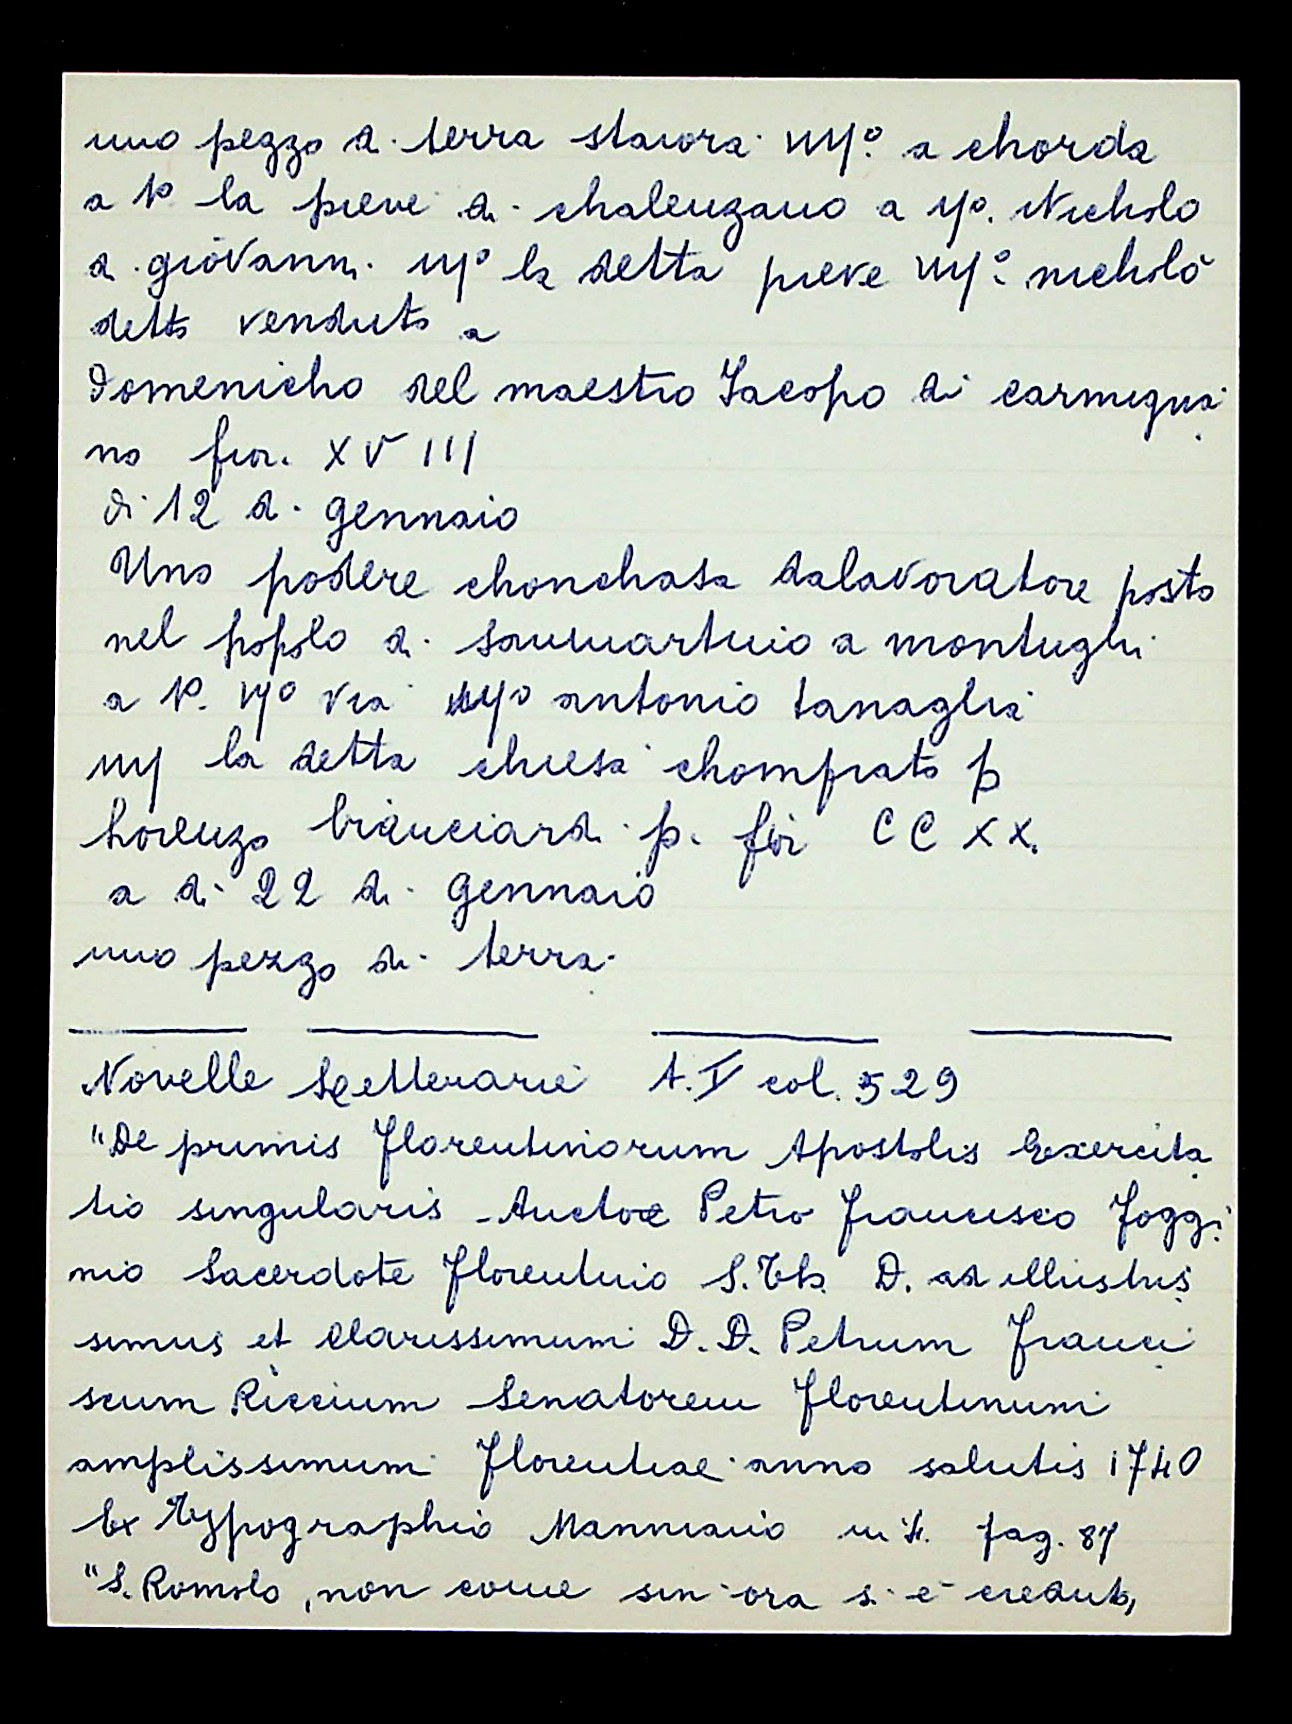 uno pezzo di terra staiora IIIJ° a chorda
a P° la pieve di chalenzano a IJ°. Nicholo
di giovanni IIJ° la detta pieve IIIJ° nicholò
detto venduto a
Domenicho del maestro Jacopo di carmigna
no fior. XVIII
di 12 di gennaio
Uno podere chonchasa dalavoratore posto
nel popolo di Sanmartino a montughi
a P°. IJ° via IIJ° antonio tanaglia
IIIJ la detta chiesa chomprato p
Lorenzo bianciardi p. fior CCXX.
a di 22 di gennaio
uno pezzo di terra
Novelle Letterarie t. V col. 529
"De primis Florentinorum Apostolis Exercita
tio singularis Auctore Petro Francisco Foggi
nio Sacerdote Florentino S. Th. D. ad illustris
simus et Clarissimum D. D. Petrum Franci
scum Riccium Senatorem Florentinum
amplissimum Florentiae anno salutis 1740
Ex Typographio Manniano in 4. pag. 87
"S. Romolo, non come sin ora si è creduto,